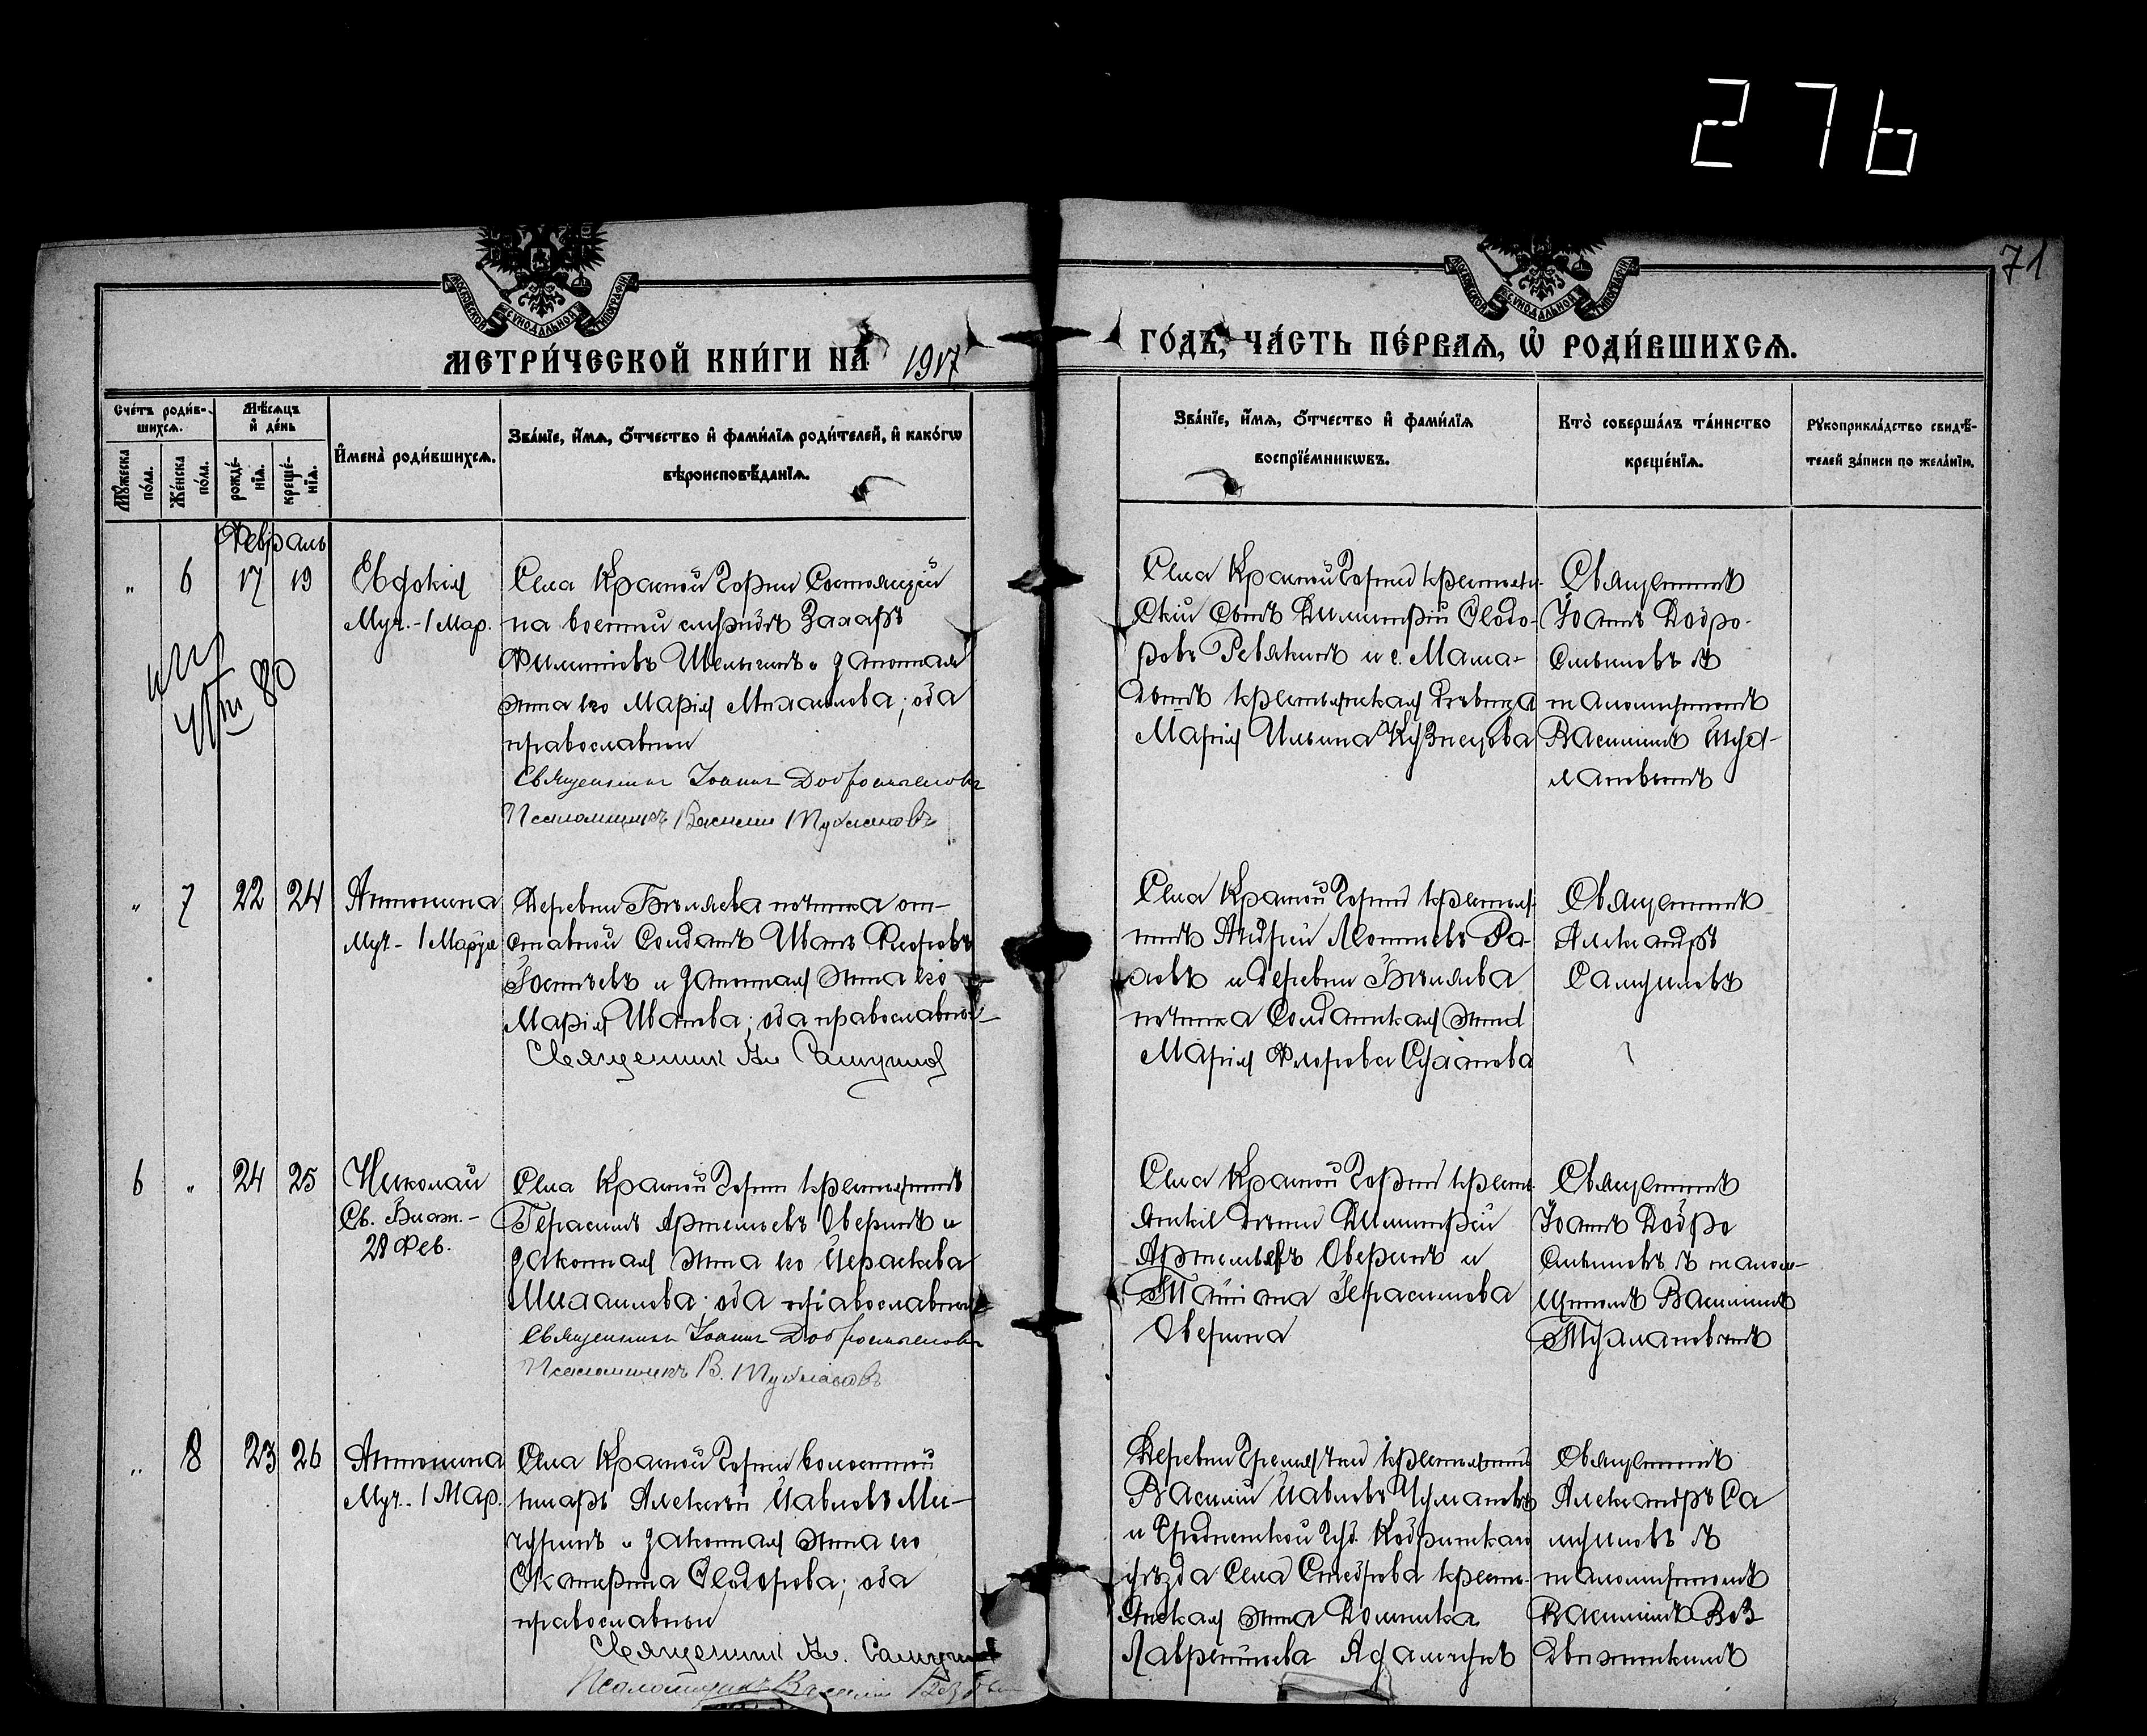 276
71
МОСКОВСКОЙ СѴНОДАЛЬНОЙ ТИПОГРАФІИ
МОСКОВСКОЙ СѴНОДАЛЬНОЙ ТИПОГРАФІИ
МЕТРИ́ЧЕСКОЙ КНИ́ГИ НА 1917
ГО́ДЪ, ЧА́СТЬ ПЕ́РВАѦ, Ѽ РОДИ́ВШИХСѦ.
Сче́тъ роди́в-
шихсѧ.
Мѣ́сѧцъ
и҆ де́нь
Мꙋ́жеска
по́ла.
Же́нска
по́ла.
рожде́-
нїѧ.
креще́-
нїѧ.
И҆мена̀ роди́вшихсѧ.
Зва́нїе, и҆́мѧ, ѻ҆́тчество и҆ фами́лїѧ роди́телей, и҆ како́гѡ
вѣроисповѣ́данїѧ.
Зва́нїе, и҆́мѧ, ѻ҆́тчество и҆ фами́лїѧ
воспрїе́мникѡвъ.
Кто̀ соверша́лъ та́инство
креще́нїѧ.
Рꙋкоприкла́дство свидѣ́-
телей за́писи по жела́нїю.
Февраль
" 6 17 19
Евдокія
Муч. - 1 Мар.
Села Красной Горки Состоящій
на военной службѣ Захаръ
Филипповъ и законная
жена его Марія Михаилова; оба
православные
Священникъ Іоаннъ Добросмысловъ
Псаломщикъ Василій Тумлановъ
80
Села Красной Горки крестьян-
скій сынъ Димитрій Ѳедо-
ровъ Ревякинъ и с. Мама-
дышъ крестьянская дѣвица
Марія Ильина Кузнецова
Священникъ
Іоаннъ Добро-
смысловъ съ
псаломщикомъ
Василіемъ Тум-
лановымъ
" 7 22 24
Антонина
Муч - 1 Марта
Деревни Бѣляева починка от-
ставной Солдатъ Иванъ
и законная жена его
Марія Иванова; оба православные
Священникъ Ал. Самуиловъ
Села Красной Горки крестья-
нинъ Андрей
и деревни Бѣляева
починка Солдатская жена
Марія Флорова
Священникъ
Александръ
Самуиловъ
6 " 24 25
Николай
Св. Блаж. -
28 Фев.
Села Красной Горки крестьянинъ
Герасимъ Артемьевъ Оверинъ и
законная жена его Параскева
Михаилова; оба православные
Священникъ Іоаннъ Добросмысловъ
Псаломщикъ В. Тумлановъ
Села Красной Горки кресть-
янскіе дѣти Димитрій
Артемьевъ Оверинъ и
Татіана Герасимова
Оверина
Священникъ
Іоаннъ Добро
смысловъ съ псалом-
щикомъ Василіемъ
Тумлановымъ
" 8 23 26
Антонина
Муч. - 1 Мар.
Села Красной Горки волостной
писарь Алексѣй Павловъ Ми-
чуринъ и законная жена его
Екатерина Ѳедорова; оба
православные
Священникъ Ал. Самуиловъ
Псаломщикъ Василій
Деревни Гремячки крестьянинъ
Василій Павловъ
и Гродненской Губ. Кобринскаго
уѣзда Села кресть-
янская жена Доминика
Лаврентьева Адамчукъ
Священникъ
Александръ Са
муиловъ съ
псаломщикомъ
Василіемъ Воз
движенскимъ